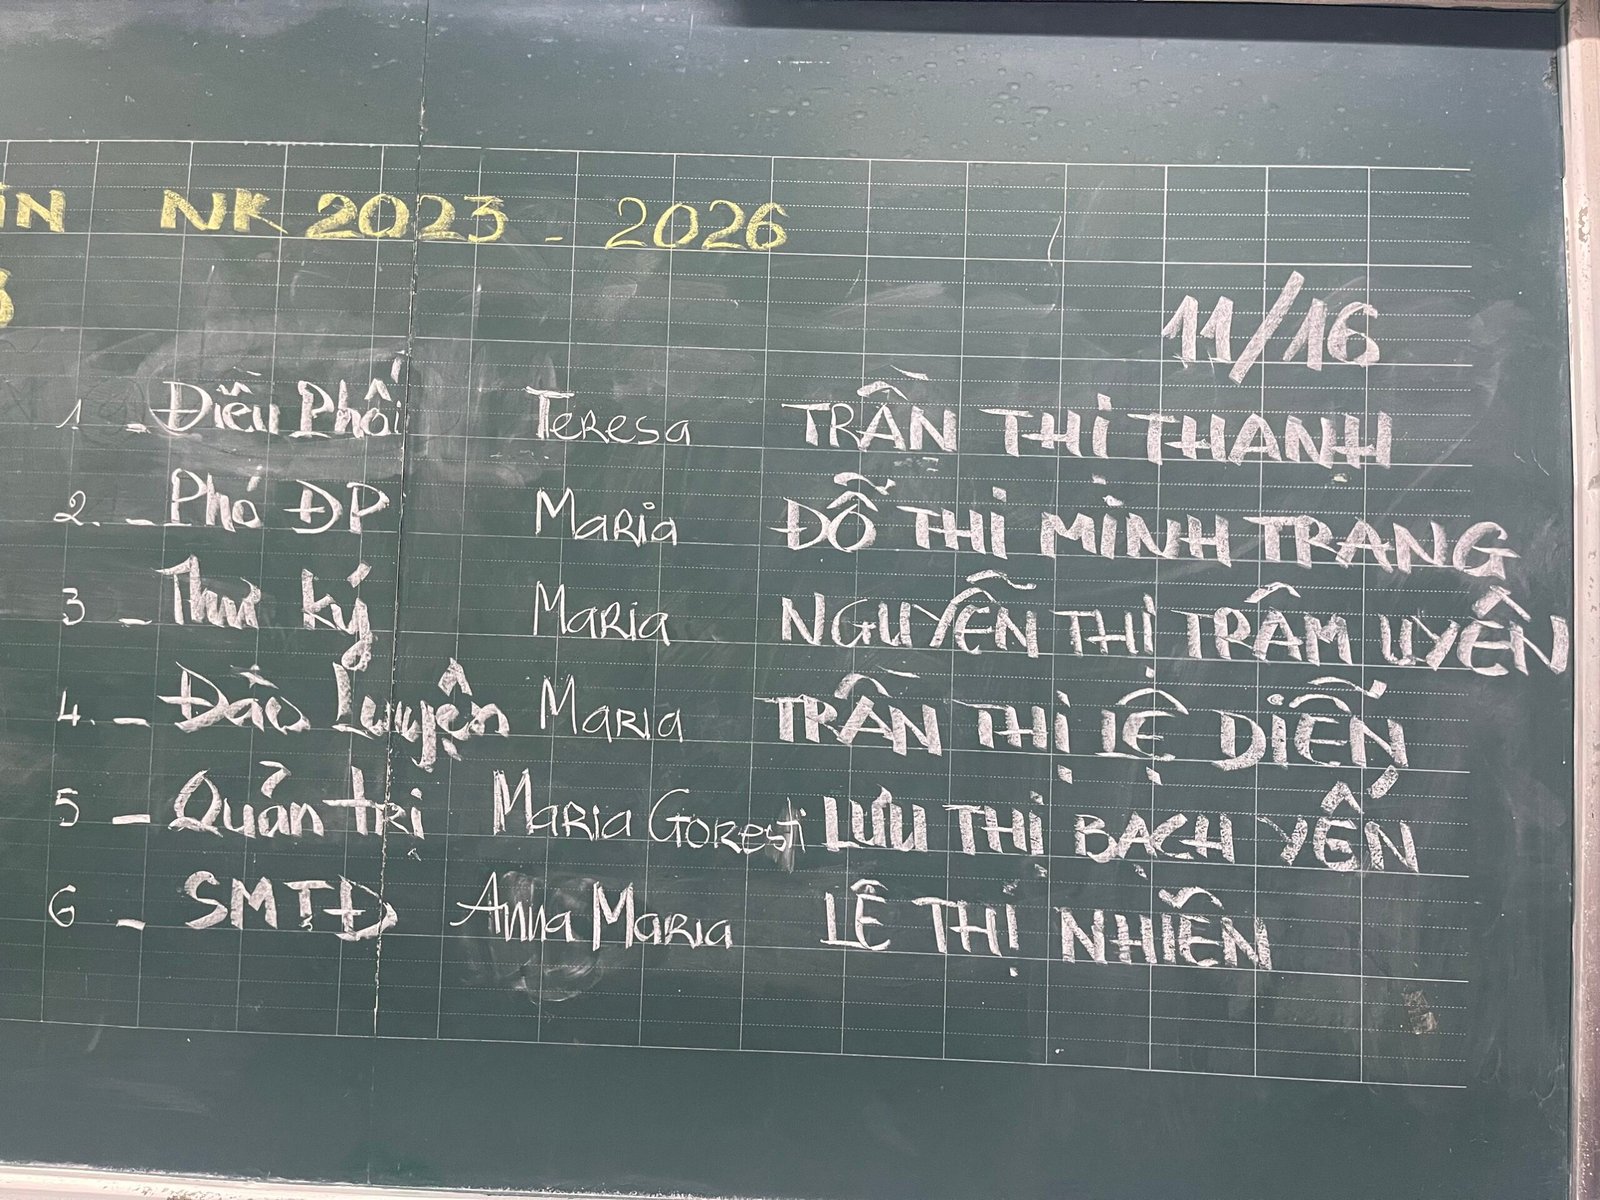 NK 2023 - 2026
11/16
1 - Điều Phối Teresa TRẦN THỊ THANH
2. - Phó ĐP Maria ĐỖ THỊ MINH TRANG
3 - Thư ký Maria NGUYỄN THỊ TRÂM UYÊN
4. - Đào Luyện Maria TRẦN THỊ LỆ DIỄN
5 - Quản trị Maria Goresti LƯU THỊ BẠCH YẾN
6 - SMTĐ Anna Maria LÊ THỊ NHIÊN